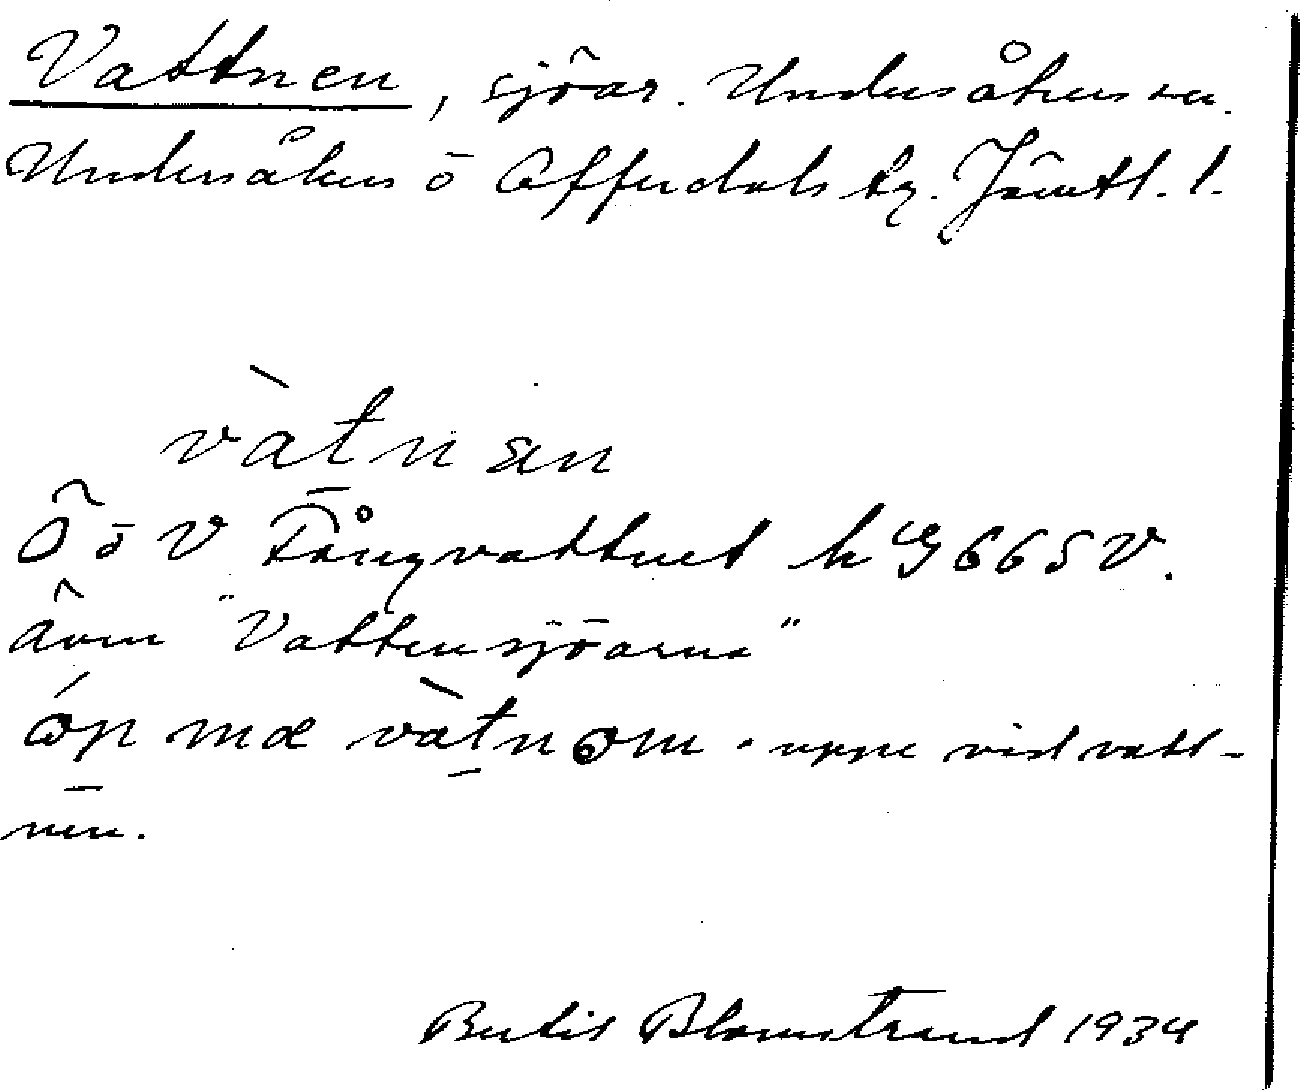 Vattnen, sjöar. Undersåkers sn.
Undersåkers o Offerdals tg. Jämtl. l.
vàtnæn
Ö o V Tångvattnet h G 665 V.
även "Vattensjöarna"
óp mæ vàtnom · uppe vid vatt-
nen.
Bertil Blomstrand 1934